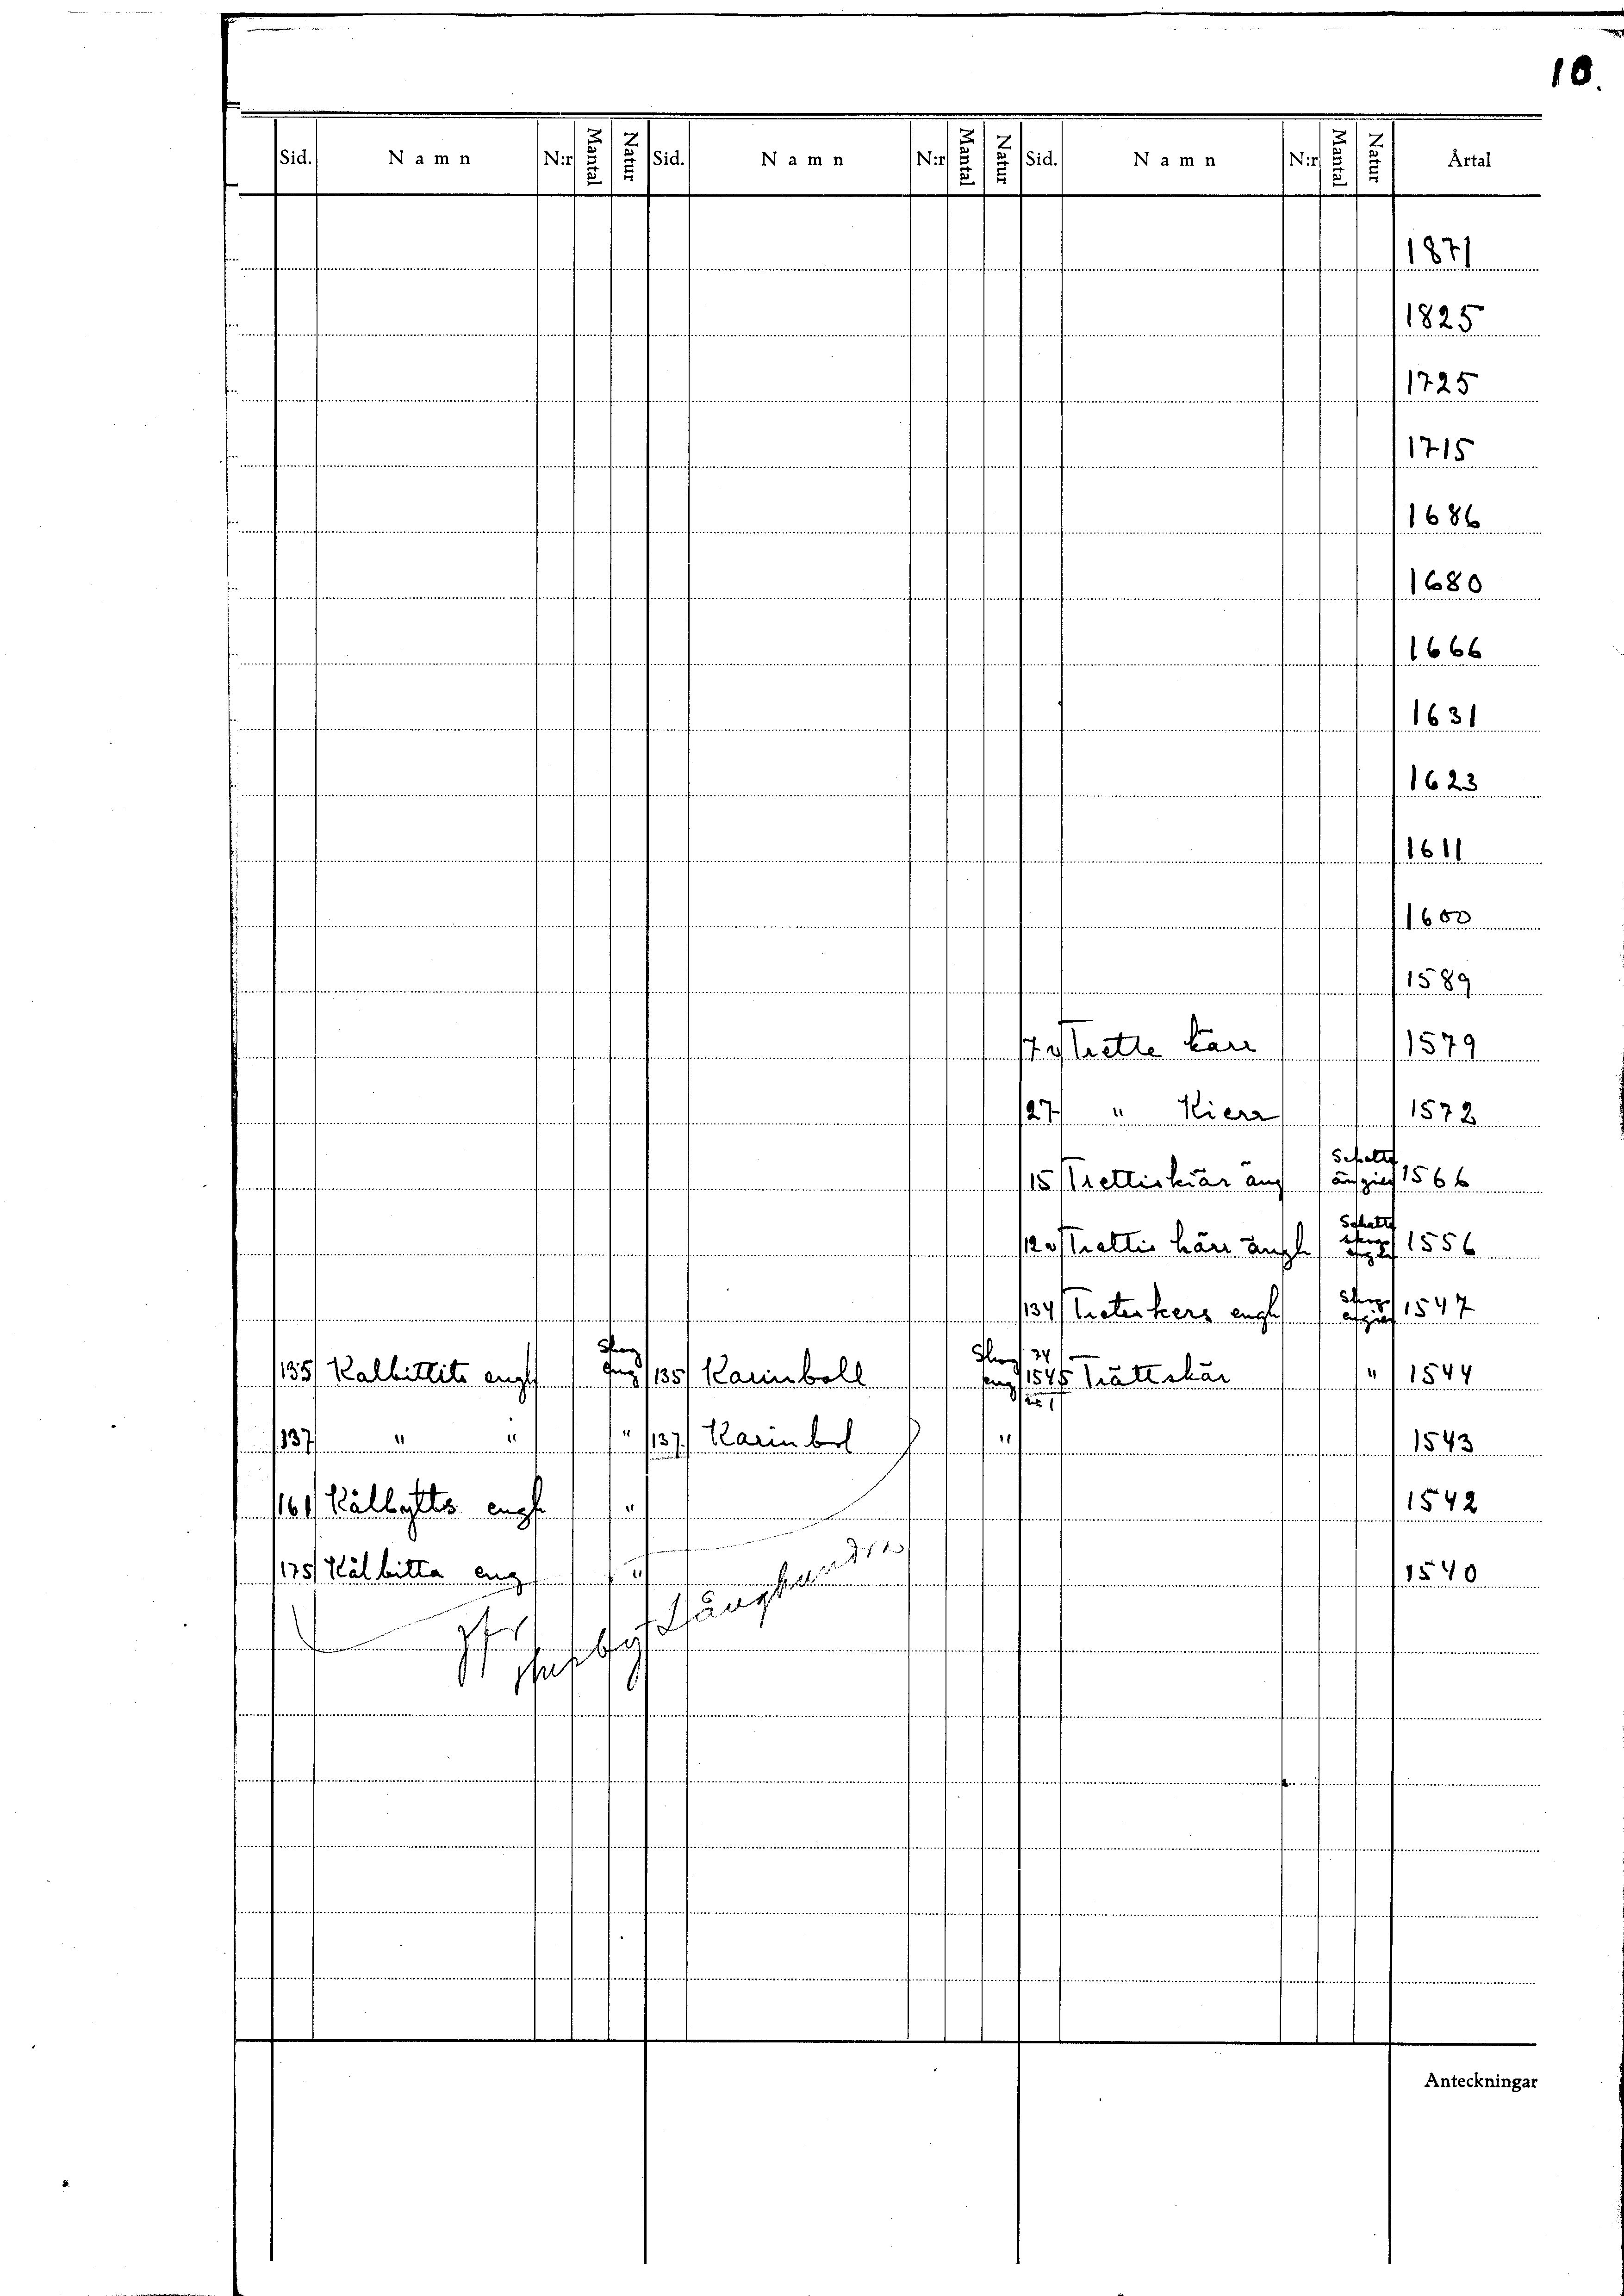 10.
Sid. Namn N:r Mantal Natur Sid. Namn N:r Mantal Natur Sid. Namn N:r Mantal Natur Årtal
1871
1825
1725
1715
1686
1680
1666
1631
1623
1611
1600
1589
7v Trette kärr 1579
27 " Kierr 1572
15 Trettiskiär äng Schatte ängier 1566
12v Trettis kärr ängh Schatte skogs engh 1556
134 Treteskers engh Skogs engier 1547
135 Kalbittits engh Skog eng 135 Karinboll Skog eng 74 1545 nr 1 Trättskär " 1544
137 " " " 137 Karinbol " 1543
161 Kålbytts engh " 1542
175 Kålbitta eng " 1540
jfr Husby Långhundra
Anteckningar